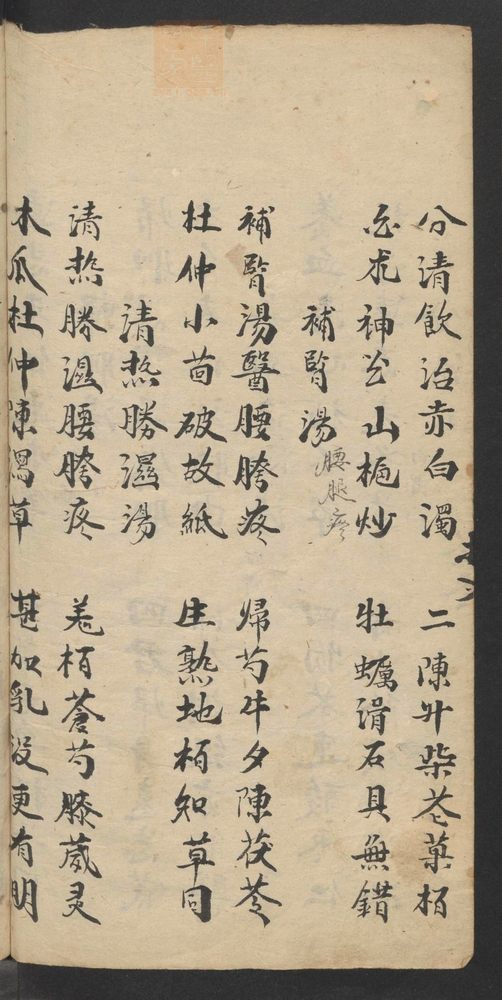 分清飲治赤白濁　二陳升柴苍藁栢
白朮神 山栀炒　牡蠣滑石具無錯
補腎湯 腰腿疼
補腎湯醫腰胯疼　歸芍牛夕陳茯苓
杜仲小茴破故紙　生熟地栢知草同
清热勝濕湯
清热勝濕腰胯疼　羌栢蒼芍膝葳灵
木瓜杜仲陳 草　甚加乳没更有明